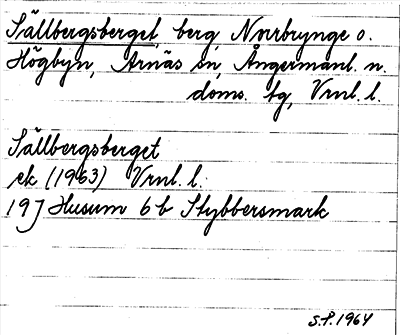 Sällbergsberget, berg Norrbynge o.
Högbyn, Arnäs sn, Ångermanl. n.
doms. tg, Vrnl. l.
Sällbergsberget
ek (1963) Vrnl. l.
19J Husum 6b Stybbersmark
S.P. 1964